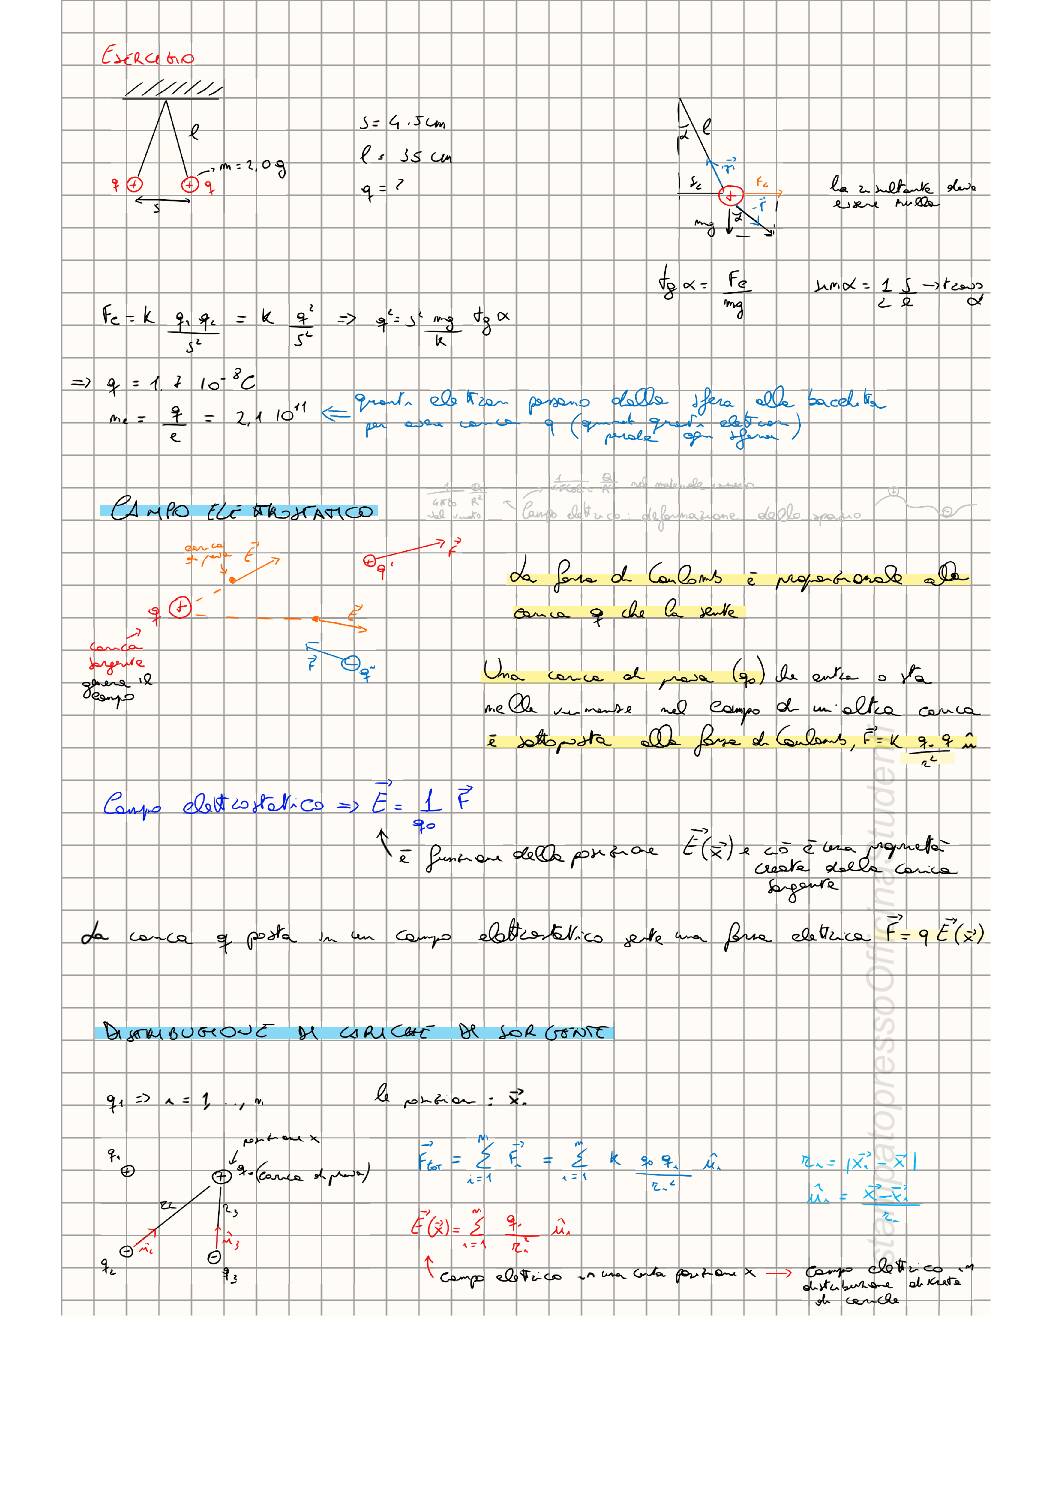 ESERCIZIO
l
m = 2,0 g
q
q
s
s = 4.5 cm
l = 35 cm
q = ?
α
l
Fe
mg
α
la risultante deve
essere nulla
tg α = Fe / mg
sin α = 1/2 s/l → trovo α
Fe = k q₁ q₂ / s² = k q² / s² ⇒ q² = s² mg / k tg α
⇒ q = 1.7 10⁻⁸ C
ne = q / e = 2,1 10¹¹ ⇐ quanti elettroni passano dalla sfera alla bacchetta
per avere carica q (quindi questi elettroni
perde ogni sfera)
CAMPO ELETTROSTATICO
nel vuoto
Campo elettrico: deformazione dello spazio
carica
di prova
E⃗
q'
F⃗
q
E⃗
F⃗
q''
carica
sorgente
genera il
campo
La forza di Coulomb è proporzionale alla
carica q che la sente
Una carica di prova (q₀) che entra o sta
nelle vicinanze nel campo di un'altra carica
è sottoposta alla forza di Coulomb, F⃗ = k q₀ q / r² û
Campo elettrostatico ⇒ E⃗ = 1/q₀ F⃗
è funzione della posizione E⃗(x⃗) e ciò è una proprietà
creata dalla carica
sorgente
La carica q posta in un campo elettrostatico sente una forza elettrica F⃗ = q E⃗(x⃗)
DISTRIBUZIONE DI CARICHE DI SORGENTE
qᵢ ⇒ i = 1, ..., n
le posizioni: x⃗ᵢ
posizione x
q₁
q₀ (carica di prova)
r₂
r₃
û₂
û₃
q₂
q₃
F⃗tot = Σⁿᵢ₌₁ F⃗ᵢ = Σⁿᵢ₌₁ k q₀ qᵢ / rᵢ² ûᵢ
rᵢ = |x⃗ᵢ - x⃗|
ûᵢ = x⃗ - x⃗ᵢ / rᵢ
E⃗(x⃗) = Σⁿᵢ₌₁ qᵢ / rᵢ² ûᵢ
campo elettrico in una certa posizione x → campo elettrico in
distribuzione discreta
di cariche
stampatopressoOfficinastudenti